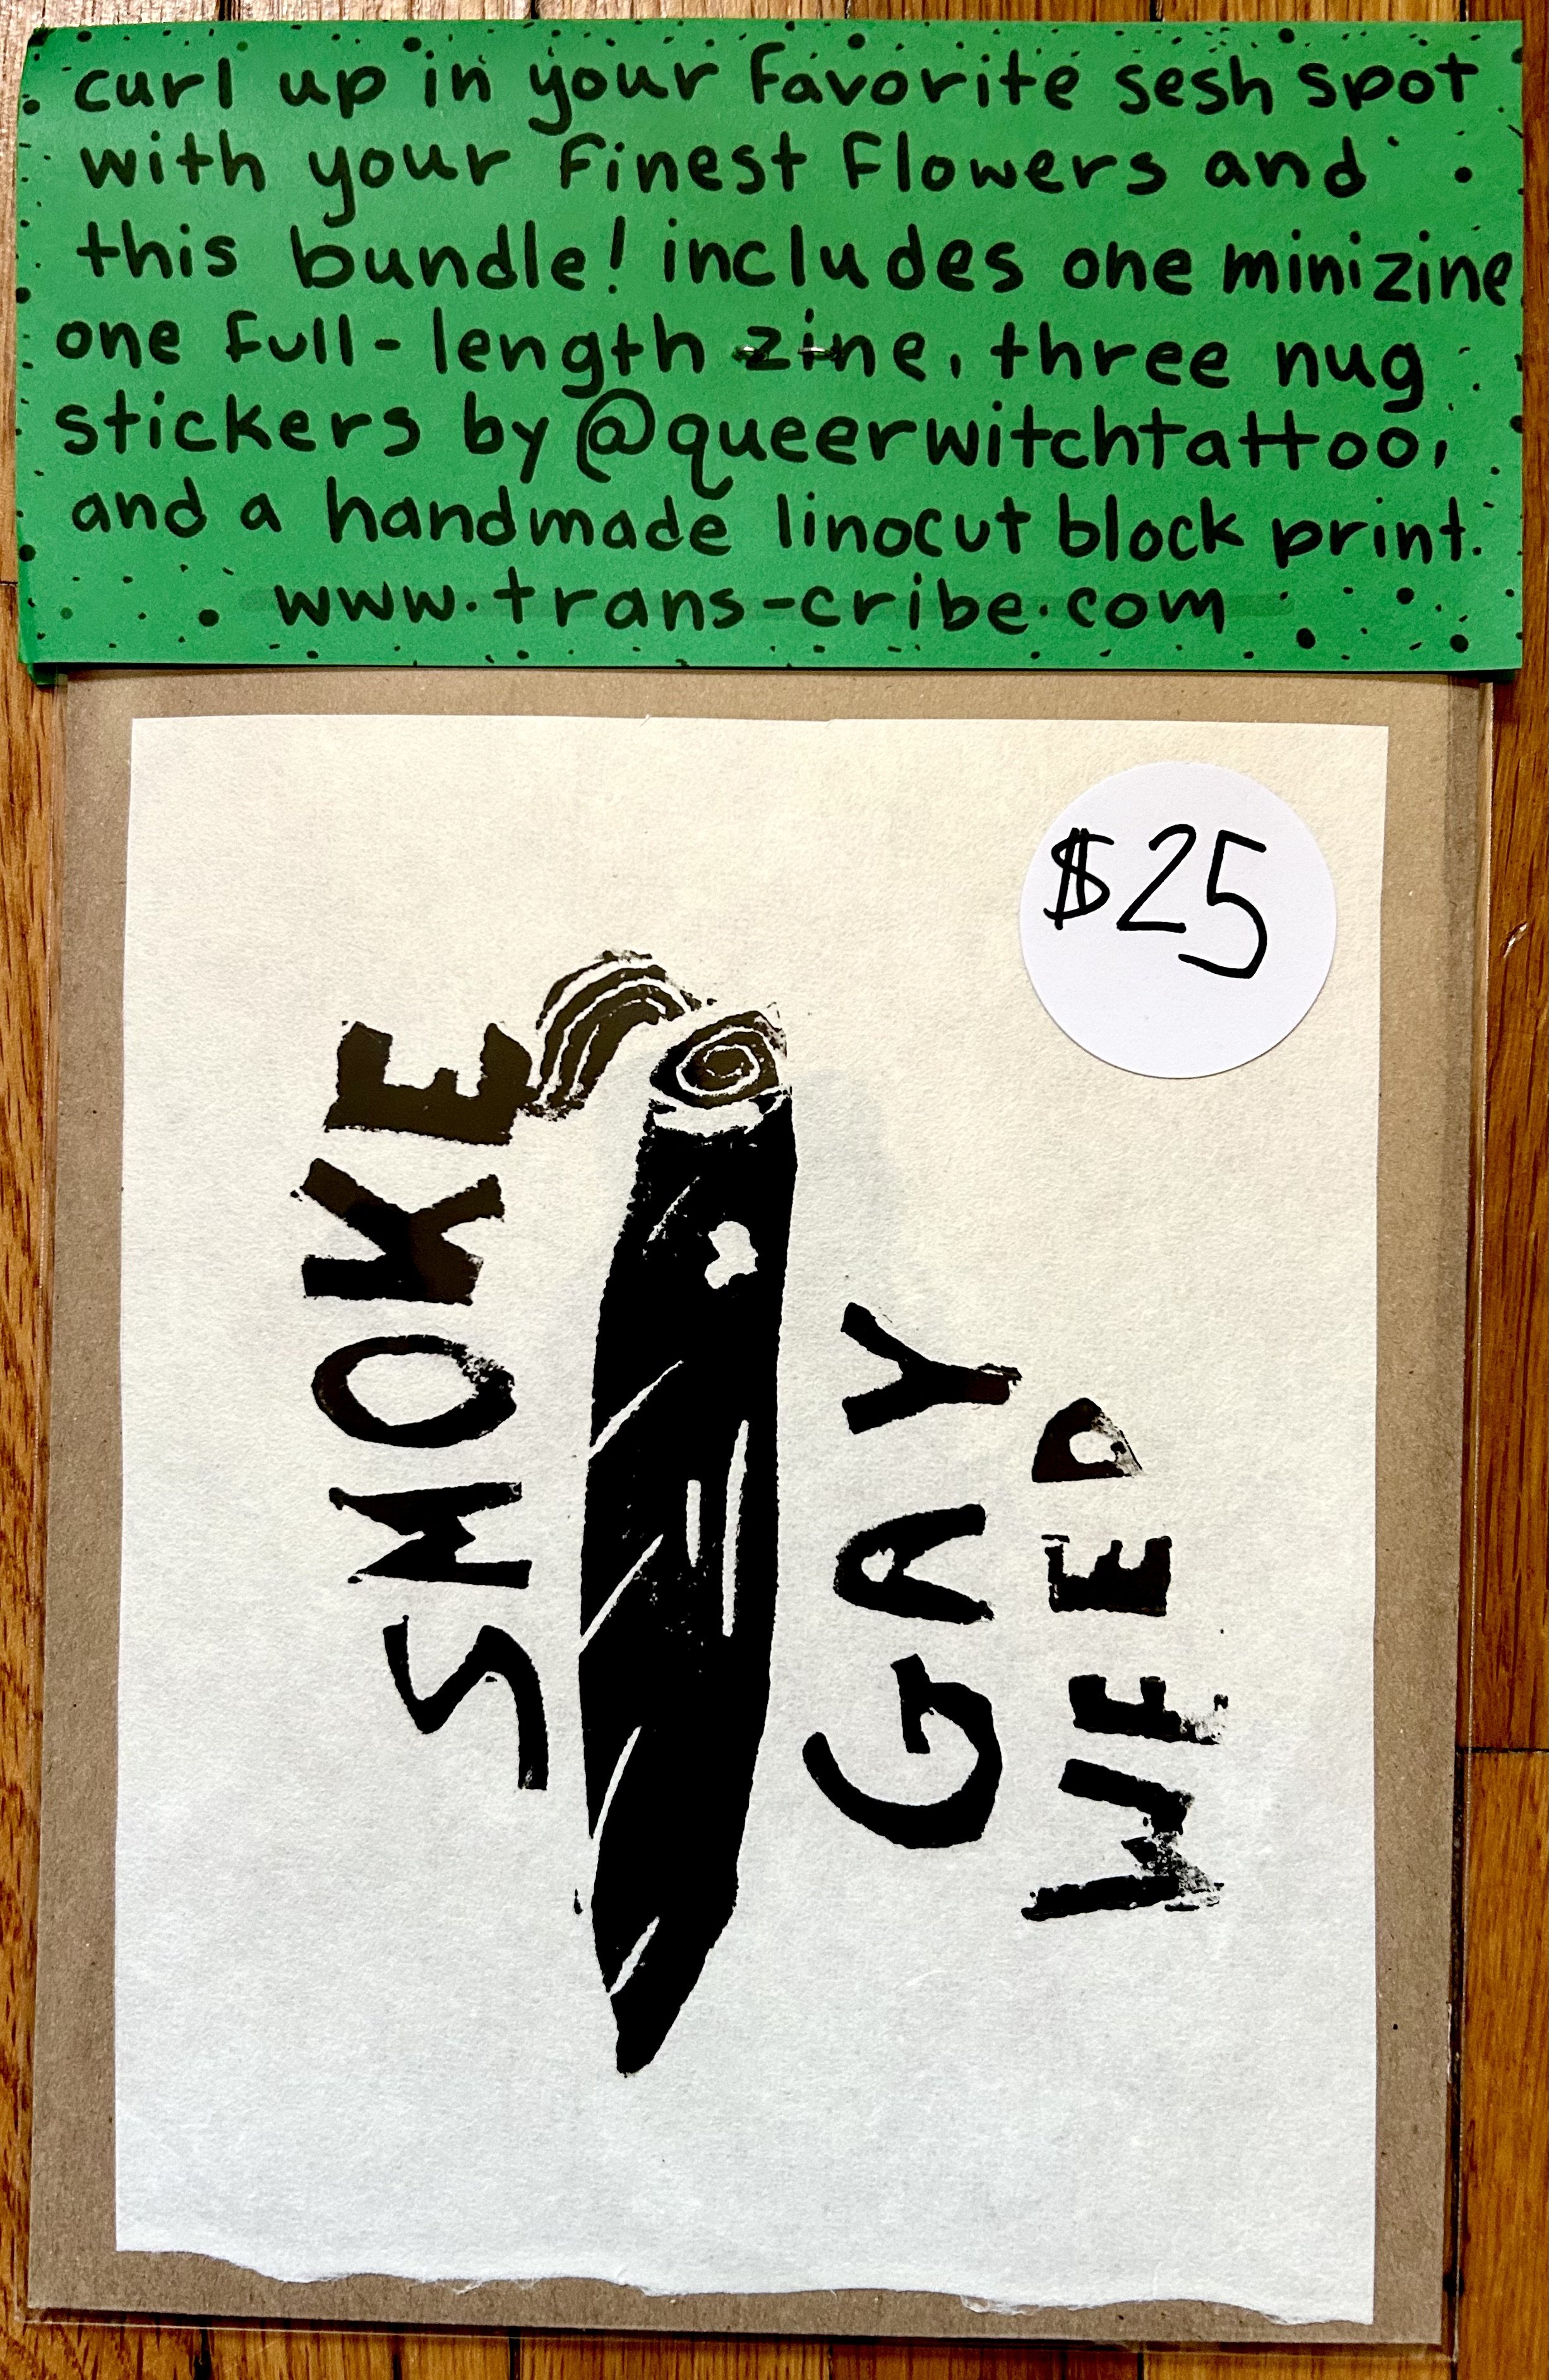 curl up in your favorite sesh spot
with your finest flowers and
this bundle! includes one minizine
one full-length zine, three nug
stickers by @queerwitchtattoo,
and a handmade linocut block print.
www.trans-cribe.com
$25
SMOKE
GAY
WEED